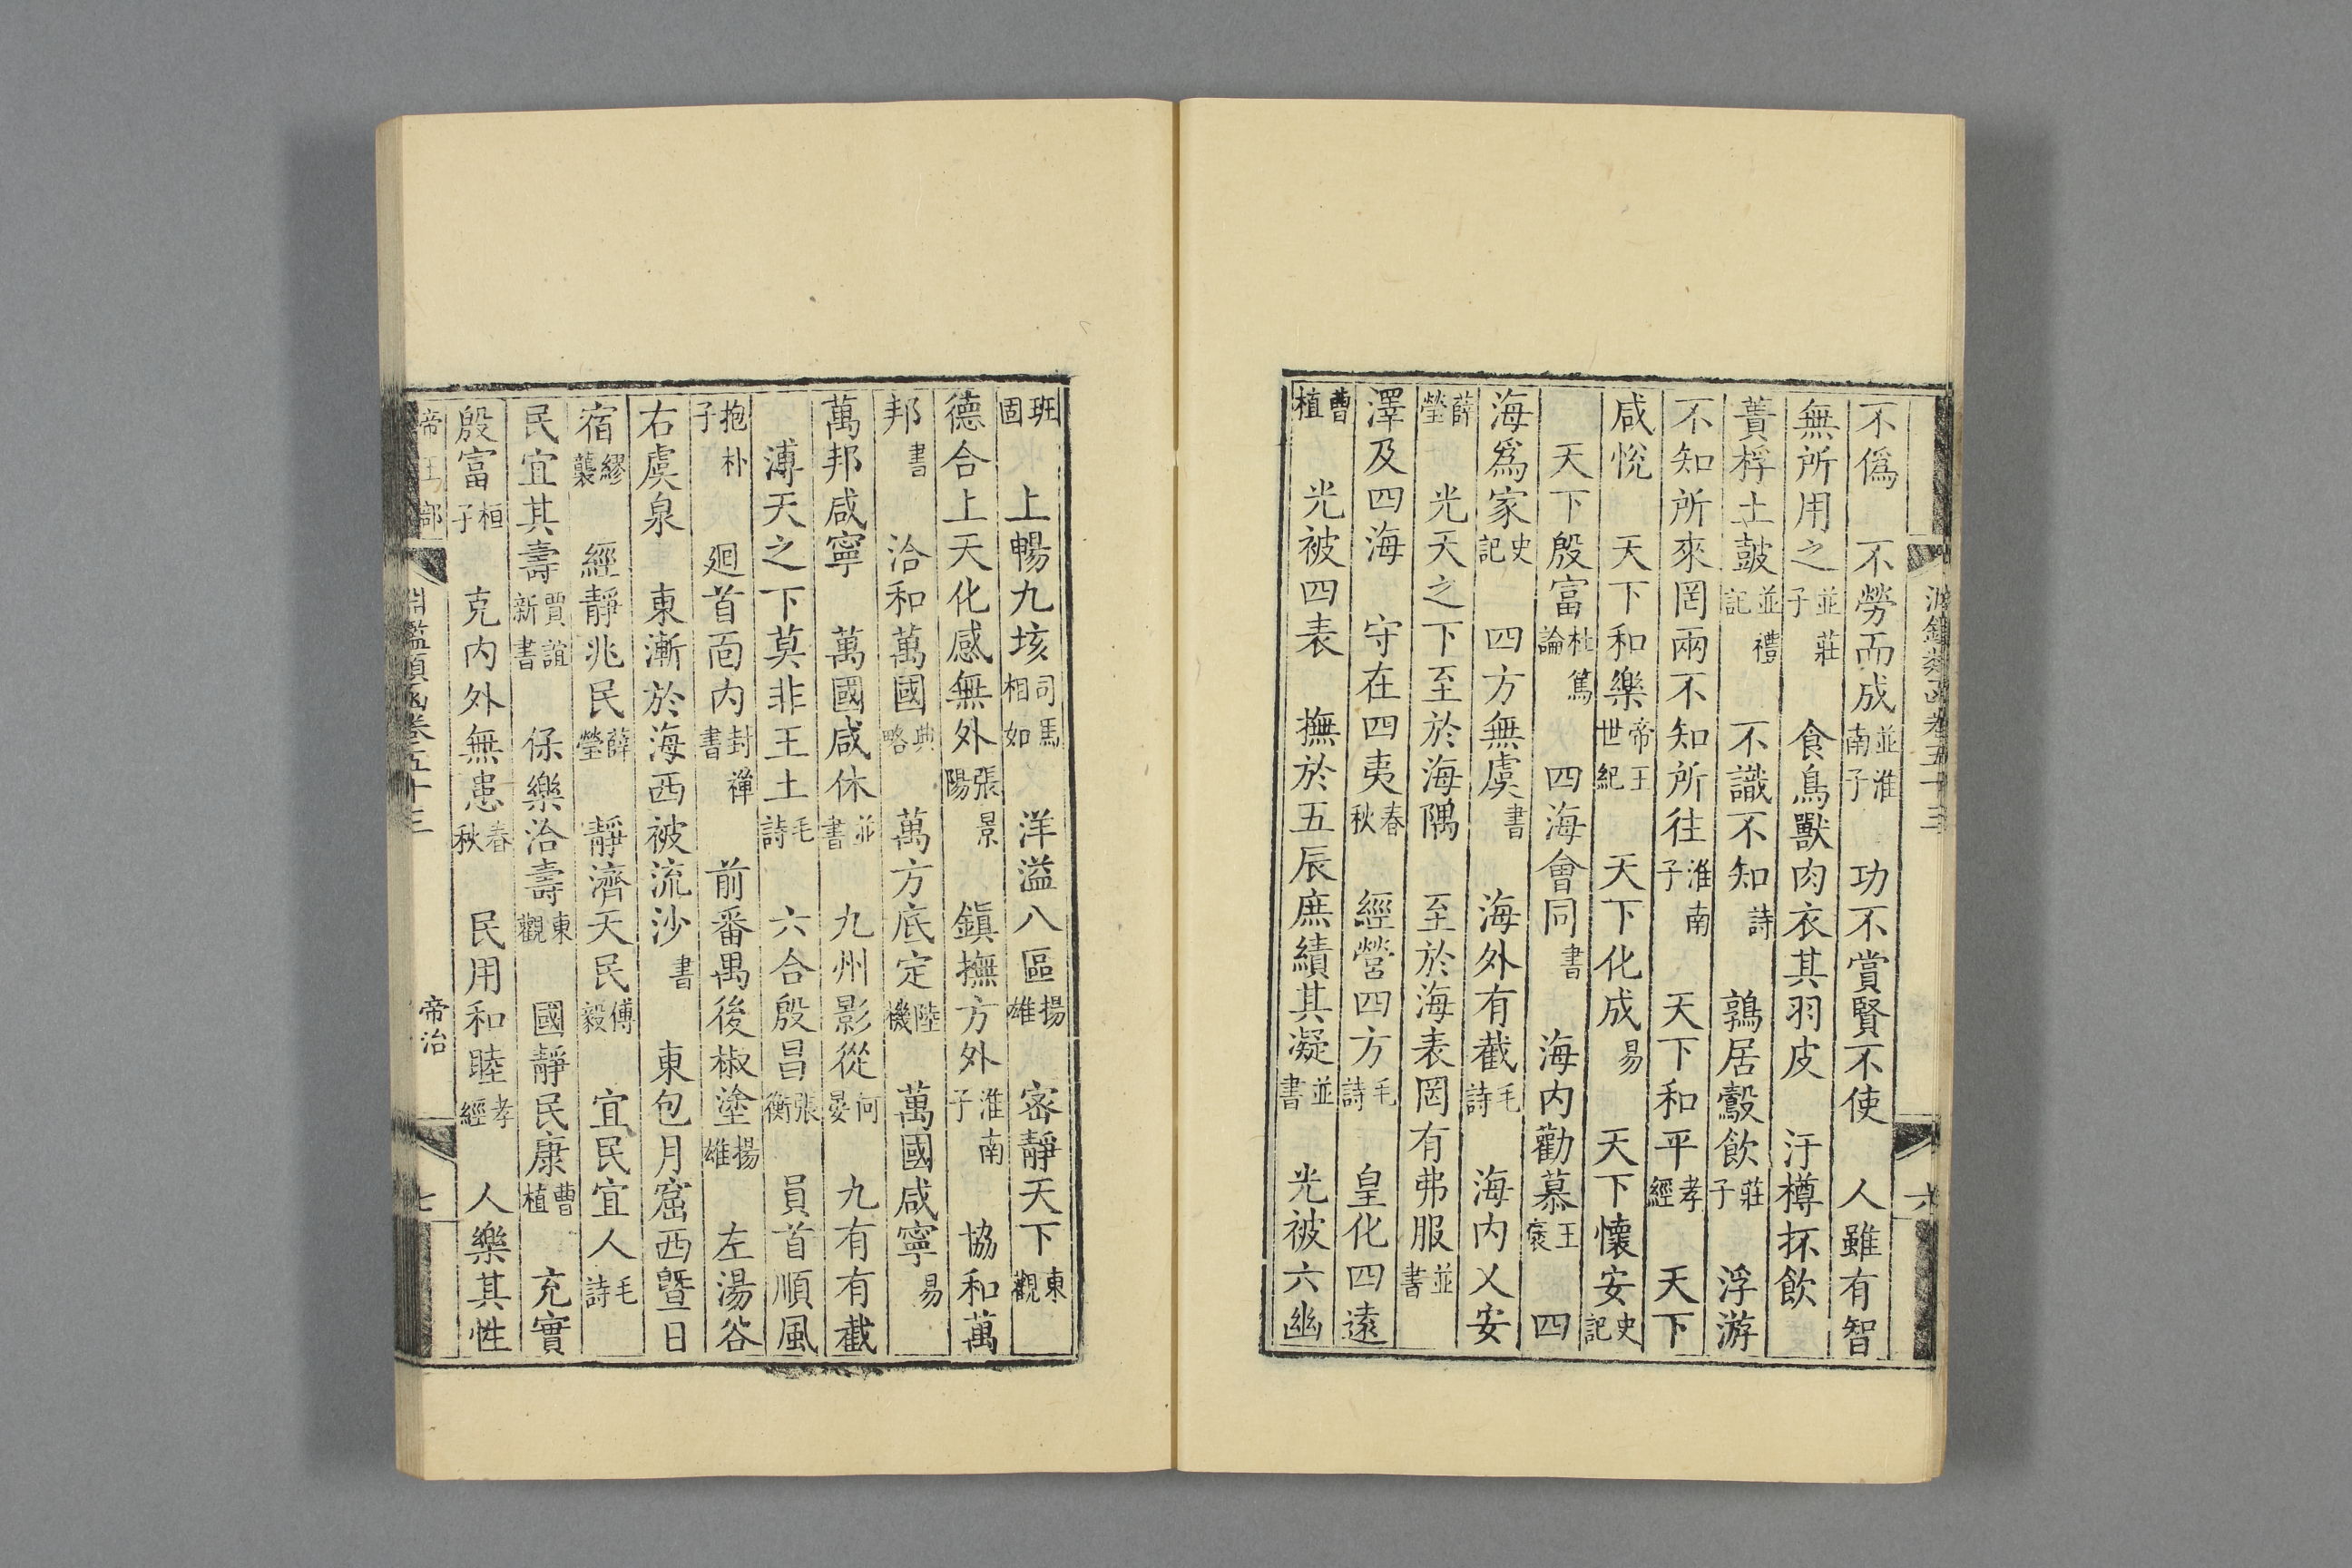 淵鑑類函卷五十三　六
不僞　不勞而成並淮南子　功不賞賢不使　人雖有智
無所用之並莊子　食鳥獸肉衣其羽皮　汙樽抔飲
蕢桴土鼓並禮記　不識不知詩　鶉居鷇飲莊子　浮游
不知所來罔兩不知所往淮南子　天下和平孝經　天下
咸悅　天下和樂帝王世紀　天下化成易　天下懷安史記
天下殷富杜篤論　四海會同書　海内勸慕王褒　四
海爲家史記　四方無虞書　海外有截毛詩　海内乂安
薛瑩　光天之下至於海隅　至於海表罔有弗服並書
澤及四海　守在四夷春秋　經營四方毛詩　皇化四遠
曹植　光被四表　撫於五辰庶績其凝並書　光被六幽
班固　上暢九垓司馬相如　洋溢八區揚雄　密靜天下東觀
德合上天化感無外張景陽　鎮撫方外淮南子　協和萬
邦書　洽和萬國典略　萬方底定陸機　萬國咸寧易
萬邦咸寧　萬國咸休並書　九州影從何晏　九有有截
溥天之下莫非王土毛詩　六合殷昌張衡　員首順風
抱朴子　廻首面内封禪書　前番禺後椒塗揚雄　左湯谷
右虞泉　東漸於海西被流沙書　東包月窟西曁日
宿繆襲　經靜兆民薛瑩　靜濟天民傅毅　宜民宜人毛詩
民宜其壽賈誼新書　保樂洽壽東觀　國靜民康曹植　充實
殷富桓子　克内外無患春秋　民用和睦孝經　人樂其性
帝王部　淵鑑類函卷五十三　帝治　七